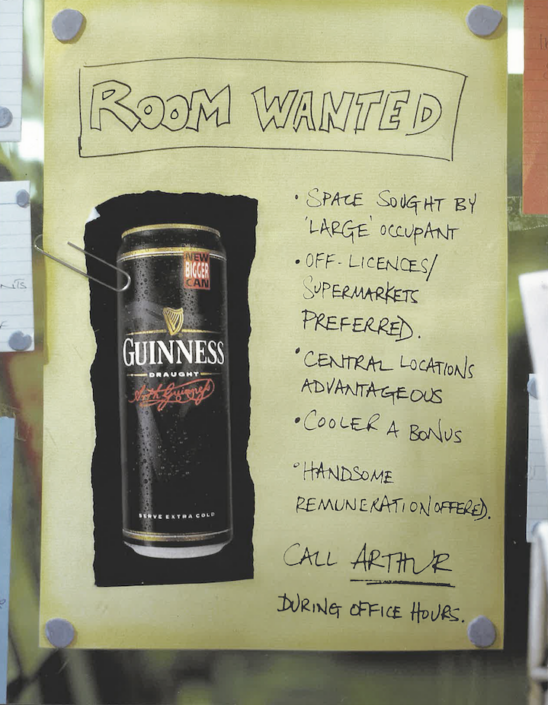 ROOM WANTED
• SPACE SOUGHT BY
'LARGE' OCCUPANT
• OFF-LICENCES/
SUPERMARKETS
PREFERRED.
• CENTRAL LOCATIONS
ADVANTAGEOUS
• COOLER A BONUS
• HANDSOME
REMUNERATION OFFERED.
CALL ARTHUR
DURING OFFICE HOURS.
NEW
BIGGER
CAN
GUINNESS
DRAUGHT
Arth Guinness
SERVE EXTRA COLD